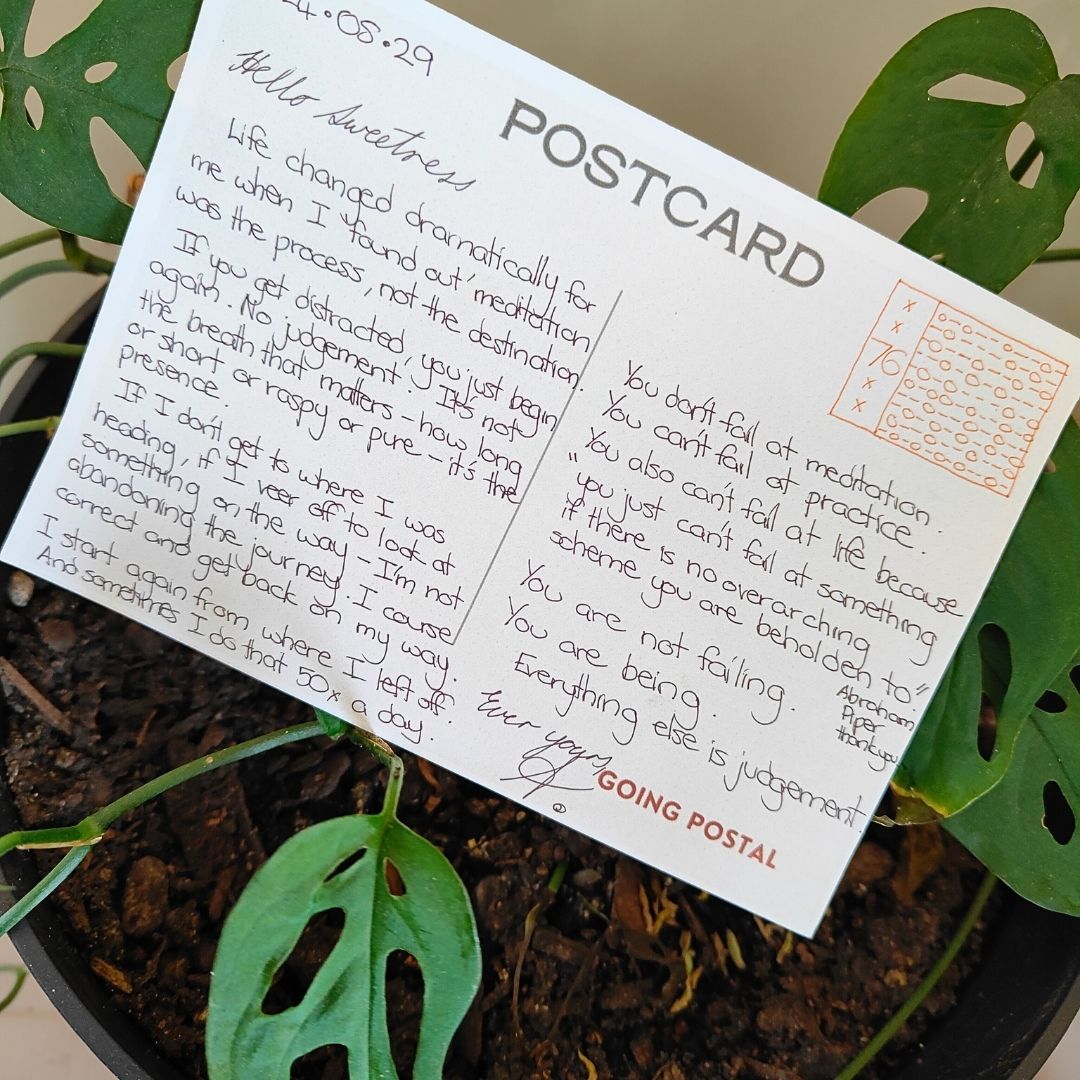 4.08.29
POSTCARD
Hello Sweetness
Life changed dramatically for
me when I found out meditation
was the process, not the destination.
If you get distracted, you just begin
again. No judgement. It's not
the breath that matters - how long
or short or raspy or pure - it's the
presence.
If I don't get to where I was
heading, if I veer off to look at
something on the way - I'm not
abandoning the journey. I course
correct and get back on my way.
I start again from where I left off.
And sometimes I do that 50x a day.
x
x
76
x
x
You don't fail at meditation.
You can't fail at practice.
You also can't fail at life because
"you just can't fail at something
if there is no overarching
scheme you are beholden to"
Abraham
Piper
thankyou
You are not failing.
You are being.
Everything else is judgement.
Ever yours,
GOING POSTAL